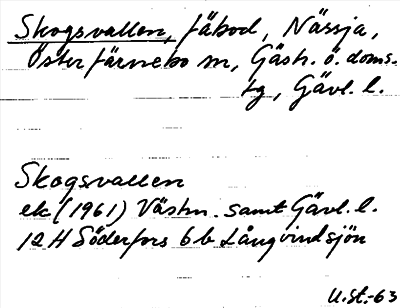 Skogsvallen, fäbod, Nässja,
Österfärnebo sn, Gästr. ö. doms.
tg, Gävl. l.
Skogsvallen
ek (1961) Västm. samt Gävl. l.
12 H Söderfors 6 b Långvindsjön
U.St.-63